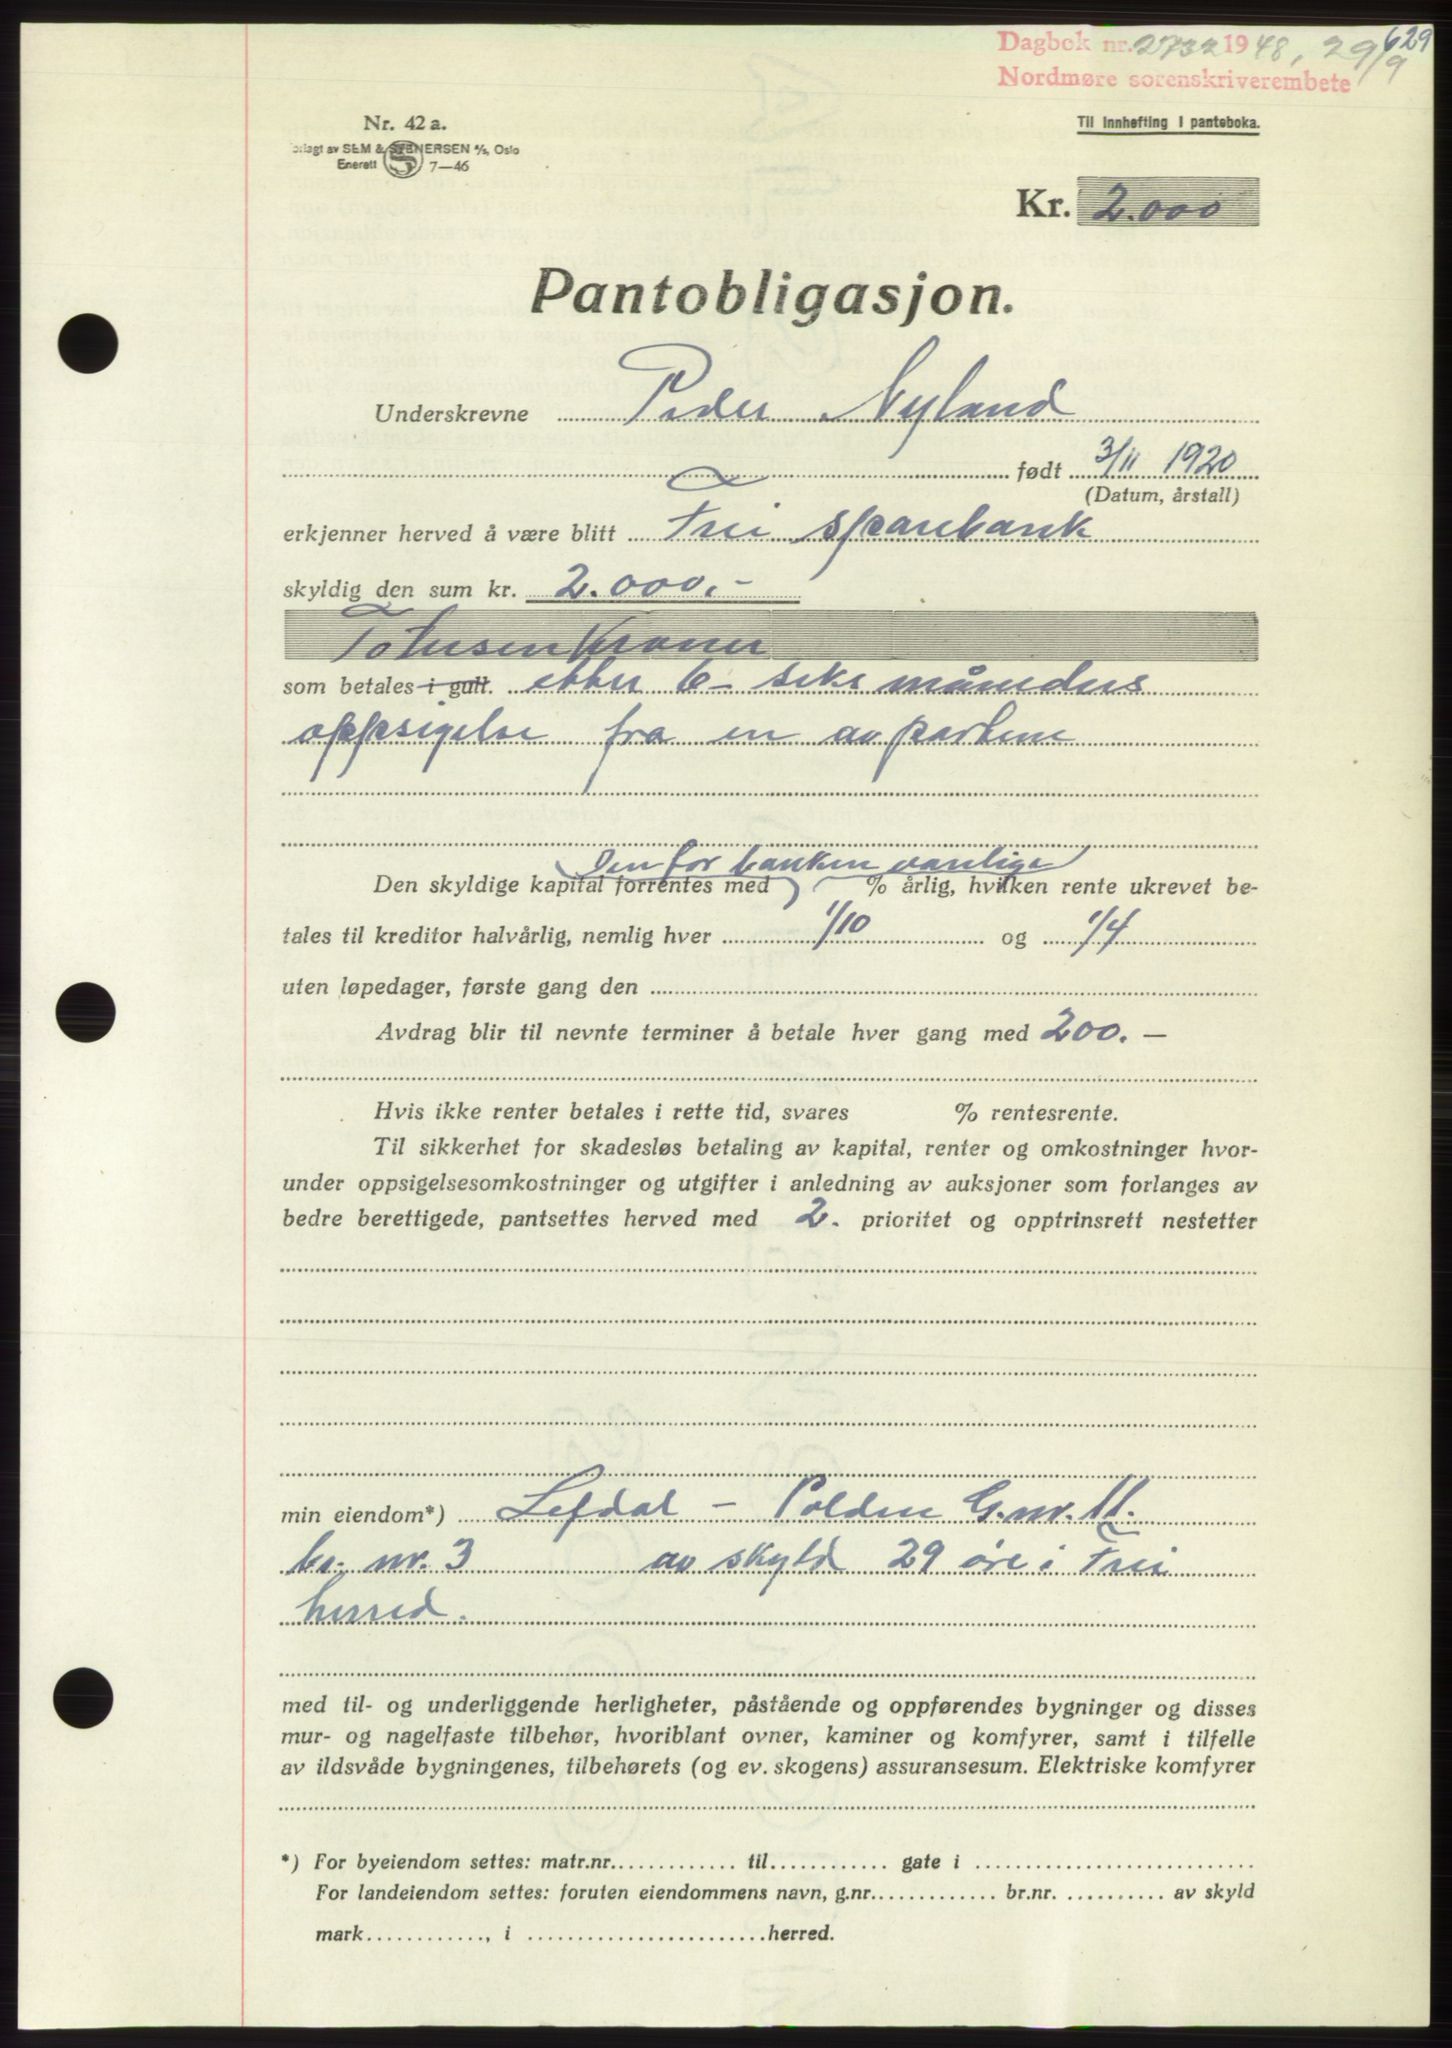 629
Dagbok nr. 2732 1948, 29/9
Nordmøre sorenskriverembete
Nr. 42 a.
Til innhefting i panteboka.
rlagt av SEM & STENERSEN A/S, Oslo
Enerett S 7—46
Kr. 2.000
Pantobligasjon.
Underskrevne Peder Nyland
født 3/11 1920
(Datum, årstall)
erkjenner herved å være blitt Frei sparebank
skyldig den sum kr. 2.000.-
Totusen kroner
som betales i gull. etter 6 - seks måneders
oppsigelse fra en av partene
den for banken vanlige
Den skyldige kapital forrentes med % årlig, hvilken rente ukrevet be-
tales til kreditor halvårlig, nemlig hver 1/10 og 1/4
uten løpedager, første gang den
Avdrag blir til nevnte terminer å betale hver gang med 200. —
Hvis ikke renter betales i rette tid, svares % rentesrente.
Til sikkerhet for skadesløs betaling av kapital, renter og omkostninger hvor-
under oppsigelsesomkostninger og utgifter i anledning av auksjoner som forlanges av
bedre berettigede, pantsettes herved med 2. prioritet og opptrinsrett nestetter
min eiendom*) Lefdal - Polden G.nr. 11.
br. nr. 3 av skyld 29 øre i Frei
herred.
med til- og underliggende herligheter, påstående og oppførendes bygninger og disses
mur- og nagelfaste tilbehør, hvoriblant ovner, kaminer og komfyrer, samt i tilfelle
av ildsvåde bygningenes, tilbehørets (og ev. skogens) assuransesum. Elektriske komfyrer
*) For byeiendom settes: matr.nr. til gate i
For landeiendom settes: foruten eiendommens navn, g.nr. br.nr. av skyld
mark , i herred.